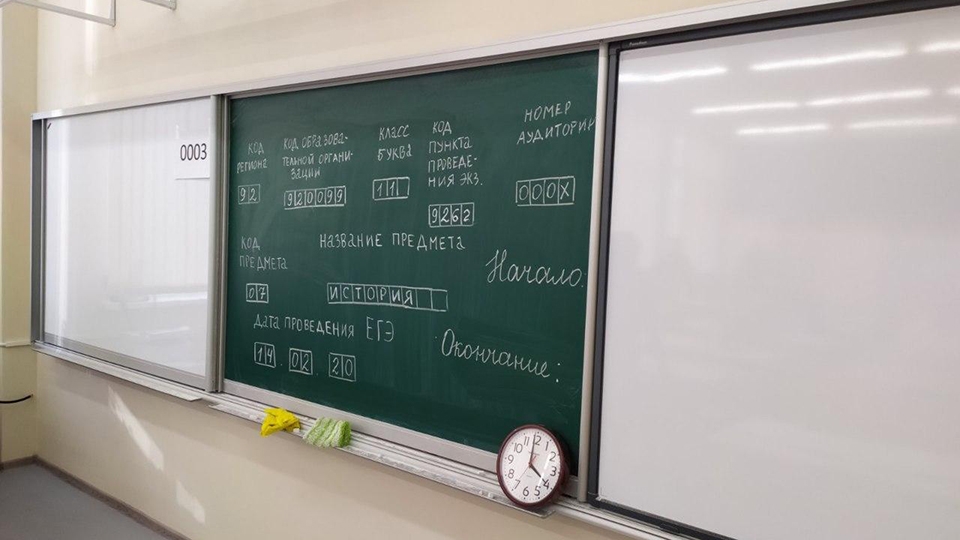 0003
КОД
РЕГИОНА
92
КОД ОБРАЗОВА-
ТЕЛЬНОЙ ОРГАНИ-
ЗАЦИИ
920099
КЛАСС
БУКВА
11
КОД
ПУНКТА
ПРОВЕДЕ-
НИЯ ЭКЗ.
9262
НОМЕР
АУДИТОРИИ
000X
КОД
ПРЕДМЕТА
07
НАЗВАНИЕ ПРЕДМЕТА
ИСТОРИЯ
Начало:
ДАТА ПРОВЕДЕНИЯ ЕГЭ
14.02.20
Окончание:
12 1 2 3 4 5 6 7 8 9 10 11